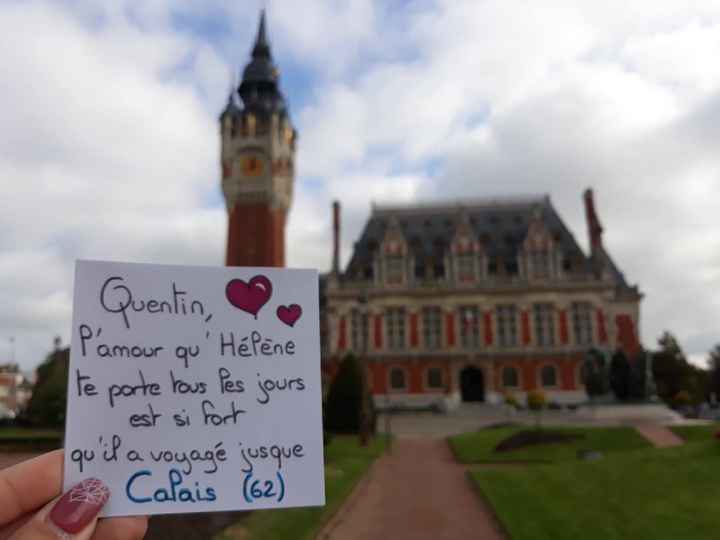 Quentin,
l'amour qu'Hélène
te porte tous les jours
est si fort
qu'il a voyagé jusque
Calais (62)